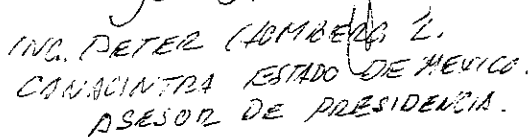 ING. PETER CHOMBERG L.
CANACINTRA ESTADO DE MEXICO.
ASESOR DE PRESIDENCIA.